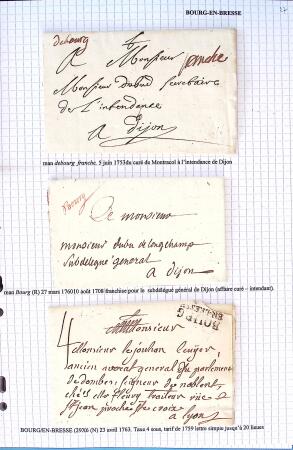 BOURG-EN-BRESSE
debourg
A Monsieur franche
Monsieur dubud secretaire
de L'intendance
a Dijon
man debourg franche. 5 juin 1753du curé de Montracol à l'intendance de Dijon
Bourg
De monsieur
monsieur dubu de longchamp
subdelegué general
a dijon
man Bourg (R) 27 mars 176010 août 1708 franchise pour le subdélégué général de Dijon (affaire curé – intendant).
Monsieur
BOURG
EN BRESSE
4 Monsieur
ancien avocat general du parlement
de dombes, seigneur de
chés fleury traiteur rüe
St jean proche Ste croix
a Lyon
BOURG/EN-BRESSE (29X6) (N) 23 avril 1763. Taxe 4 sous, tarif de 1759 lettre simple jusqu'à 20 lieues